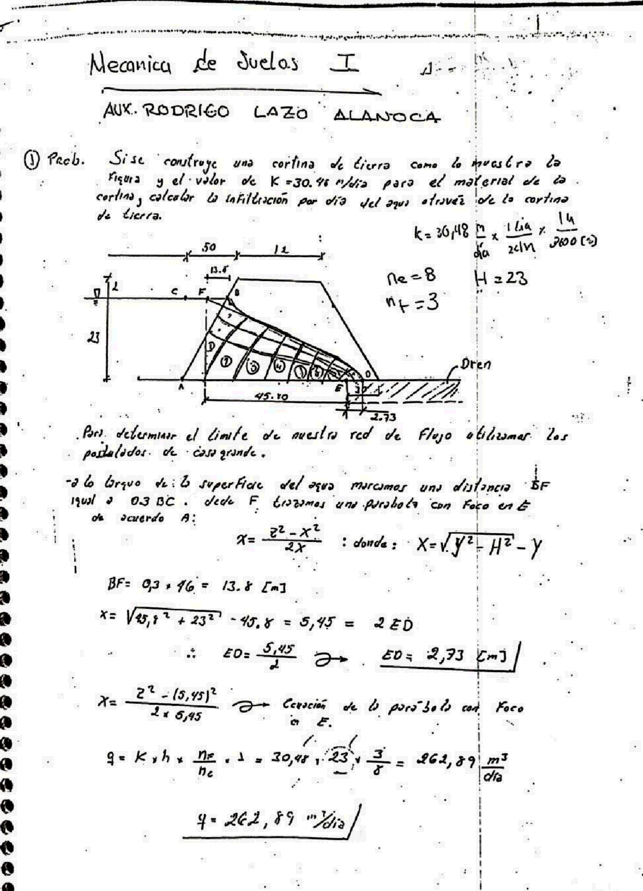 Mecanica de Suelos I
AUX. RODRIGO LAZO ALANOCA
① Prob. Si se construye una cortina de tierra como lo muestra la
figura y el valor de K = 30.48 m/dia para el material de la
cortina, calcular la infiltración por dia del agua atravez de la cortina
de tierra.
k = 30,48 m/dia × 1 dia/24h × 1h/3600(s)
50 12
13.8
ne = 8 H = 23
nt = 3
2
C F B
23
D
② ③ ④
Dren
A E
45.80
2.73
Para determinar el limite de nuestra red de Flujo utilizamos los
postulados de casagrande.
- a lo largo de la superficie del agua marcamos una distancia BF
igual a 0.3 BC. desde F trazamos una parabola con Foco en E
de acuerdo A:
X = Z² - X² / 2X : donde : X = √Y² - H² - Y
BF = 0,3 * 46 = 13.8 [m]
X = √45,8² + 23² - 45.8 = 5,45 = 2 ED
∴ ED = 5,45/2 → ED = 2,73 [m]
X = Z² - (5,45)² / 2 * 5,45 → Ecuación de la parábola con Foco
en E.
q = K * h * nF/nc * 1 = 30,48 * 23 * 3/8 = 262,89 m³/dia
q = 262,89 m³/dia